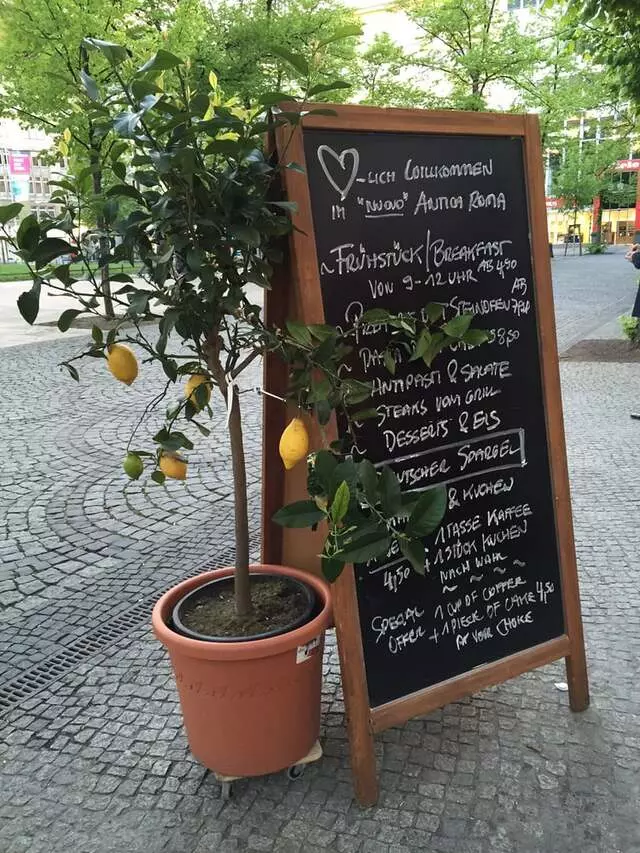 ♥-LICH WILLKOMMEN
IM "NUOVO" ANTICA ROMA
~ FRÜHSTÜCK/BREAKFAST
VON 9-12 UHR AB 4,90
AB
STEINOFEN 7,90
8,50
~ ANTIPASTI & SALATE
~ STEAKS VOM GRILL
~ DESSERTS & EIS
SPARGEL
& KUCHEN
1 TASSE KAFFEE
4,50 + 1 STÜCK KUCHEN
NACH WAHL
~ ~ ~
SPECIAL OFFER 1 CUP OF COFFEE
+ 1 PIECE OF CAKE 4,50
AT YOUR CHOICE